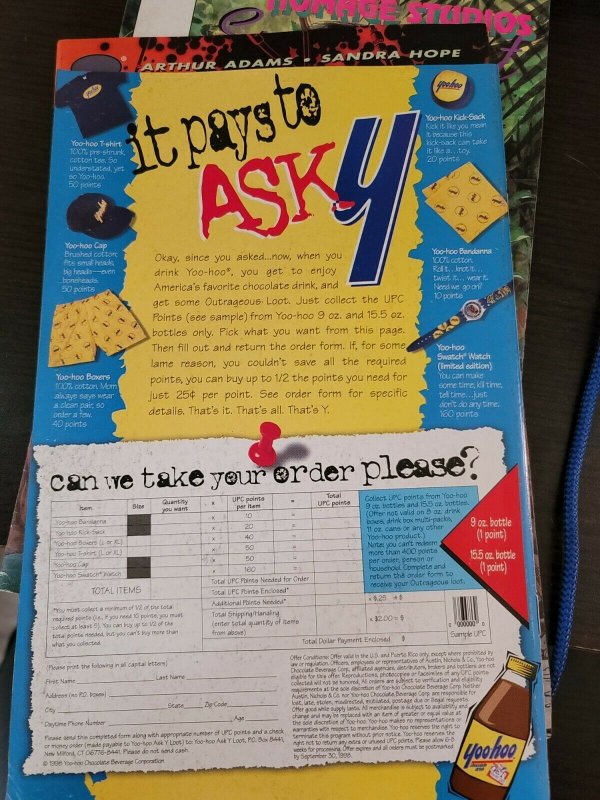 HOMAGE STUDIOS
ARTHUR ADAMS • SANDRA HOPE
it pays to
ASK Y
yoohoo
Yoo-hoo T-shirt
100% pre-shrunk
cotton tee. So
understated, yet
so Yoo-hoo.
50 points
Yoo-hoo Cap
Brushed cotton;
fits small heads,
big heads—even
boneheads.
50 points
Yoo-hoo Boxers
100% cotton. Mom
always says wear
a clean pair, so
order a few.
40 points
yoohoo
Yoo-hoo Kick-Sack
Kick it like you mean
it because this
kick-sack can take
it like a...toy.
20 points
Yoo-hoo Bandanna
100% cotton.
Roll it... knot it...
twist it... wear it.
Need we go on?
10 points
Yoo-hoo
Swatch® Watch
(limited edition)
You can make
some time, kill time,
tell time...just
don't do any time.
160 points
Okay, since you asked...now, when you
drink Yoo-hoo®, you get to enjoy
America's favorite chocolate drink, and
get some Outrageous Loot. Just collect the UPC
Points (see sample) from Yoo-hoo 9 oz. and 15.5 oz.
bottles only. Pick what you want from this page.
Then fill out and return the order form. If, for some
lame reason, you couldn't save all the required
points, you can buy up to 1/2 the points you need for
just 25¢ per point. See order form for specific
details. That's it. That's all. That's Y.
can we take your order please?
Item Size Quantity you want x UPC points per item = Total UPC points
Yoo-hoo Bandanna x 10
Yoo-hoo Kick-Sack x 20
Yoo-hoo Boxers (L or XL) x 40
Yoo-hoo T-shirt (L or XL) x 50 =
Yoo-hoo Cap x 50 =
Yoo-hoo Swatch® Watch x 160 =
TOTAL ITEMS
Total UPC Points Needed for Order
Total UPC Points Enclosed*
Additional Points Needed* x $.25 = $
Total Shipping/Handling
(enter total quantity of items
from above) x $2.00 = $
Total Dollar Payment Enclosed $
*You must collect a minimum of 1/2 of the total
required points (i.e., if you need 10 points, you must
collect at least 5). You can buy up to 1/2 of the
total points needed, but you can't buy more than
what you collected.
Collect UPC points from Yoo-hoo
9 oz. bottles and 15.5 oz. bottles.
(Offer not valid on 8 oz. drink
boxes, drink box multi-packs,
11 oz. cans or any other
Yoo-hoo product.)
Note: you can't redeem
more than 400 points
per order, person or
household. Complete and
return this order form to
receive your Outrageous loot.
9 oz. bottle
(1 point)
15.5 oz. bottle
(1 point)
0 00000 0
Sample UPC
(Please print the following in all capital letters)
First Name Last Name
Address (no P.O. boxes)
City State Zip Code
Daytime Phone Number Age
Please send this completed form along with appropriate number of UPC points and a check
or money order (made payable to Yoo-hoo Ask Y Loot) to: Yoo-hoo Ask Y Loot, P.O. Box 8441,
New Milford, CT 06776-8441. Please do not send cash.
© 1998 Yoo-hoo Chocolate Beverage Corporation
Offer Conditions: Offer valid in the U.S. and Puerto Rico only, except where prohibited by
law or regulation. Officers, employees or representatives of Austin, Nichols & Co., Yoo-hoo
Chocolate Beverage Corp., affiliated agencies, distributors, brokers and bottlers are not
eligible for this offer. Reproductions, photocopies or facsimiles of any UPC points
collected will not be honored. All orders are subject to verification and eligibility
requirements at the sole discretion of Yoo-hoo Chocolate Beverage Corp. Neither
Austin, Nichols & Co. nor Yoo-hoo Chocolate Beverage Corp. are responsible for
lost, late, stolen, misdirected, mutilated, postage due or illegible requests.
Offer good while supply lasts. All merchandise is subject to availability and
change and may be replaced with an item of greater or equal value at
the sole discretion of Yoo-hoo. Yoo-hoo makes no representations or
warranties with respect to merchandise. Yoo-hoo reserves the right to
terminate this program without prior notice. Yoo-hoo reserves the
right not to return any extra or unused UPC points. Please allow 6-8
weeks for processing. Offer expires and all orders must be postmarked
by September 30, 1998.
yoohoo